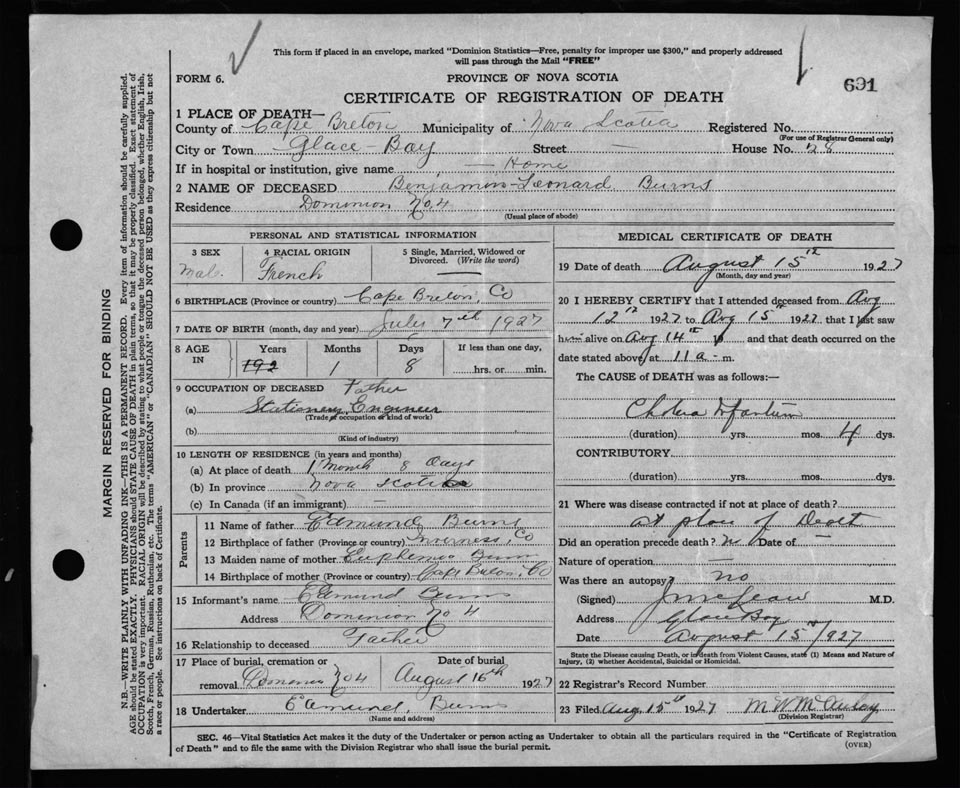 This form if placed in an envelope, marked "Dominion Statistics—Free, penalty for improper use $300," and properly addressed
will pass through the Mail "FREE"
FORM 6.
PROVINCE OF NOVA SCOTIA
691
CERTIFICATE OF REGISTRATION OF DEATH
MARGIN RESERVED FOR BINDING
N.B.—WRITE PLAINLY, WITH UNFADING INK—THIS IS A PERMANENT RECORD. Every item of information should be carefully supplied.
AGE should be stated EXACTLY. PHYSICIANS should STATE CAUSE OF DEATH in plain terms, so that it may be properly classified. Exact statement of
OCCUPATION is very important. RACIAL ORIGIN will be described by stating to what people or tongue the deceased person belonged, whether English, Irish,
Scotch, French, German, Russian, Ruthenian, etc. The terms "AMERICAN" or "CANADIAN" SHOULD NOT BE USED as they express citizenship but not
a race or people. See instructions on back of Certificate.
1 PLACE OF DEATH—
County of Cape Breton Municipality of Nova Scotia Registered No.
(For use of Registrar General only)
City or Town Glace-Bay Street — House No. 28
If in hospital or institution, give name — Home
2 NAME OF DECEASED Benjamin-Leonard Burns
Residence Dominion No 4
(Usual place of abode)
PERSONAL AND STATISTICAL INFORMATION
3 SEX 4 RACIAL ORIGIN 5 Single, Married, Widowed or
Divorced. (Write the word)
Male French —
6 BIRTHPLACE (Province or country) Cape Breton, Co
7 DATE OF BIRTH (month, day and year) July 7th 1927
8 AGE IN Years Months Days If less than one day,
192 1 8 hrs. or min.
9 OCCUPATION OF DECEASED Father
(a) Stationery Engineer
(Trade, occupation or kind of work)
(b)
(Kind of industry)
10 LENGTH OF RESIDENCE (in years and months)
(a) At place of death 1 Month 8 Days
(b) In province Nova Scotia
(c) In Canada (if an immigrant) —
Parents
11 Name of father Edmund Burns
12 Birthplace of father (Province or country) Inverness, Co
13 Maiden name of mother Euphemia Burns
14 Birthplace of mother (Province or country) Cape Breton, Co
15 Informant's name Edmund Burns
Address Dominion No 4
16 Relationship to deceased Father
17 Place of burial, cremation or Date of burial
removal Dominion No 4 August 16th 1927
18 Undertaker Edmund Burns
(Name and address)
MEDICAL CERTIFICATE OF DEATH
19 Date of death August 15th 1927
(Month, day and year)
20 I HEREBY CERTIFY that I attended deceased from Aug
12th 1927 to Aug 15th 1927 that I last saw
him alive on Aug 14th and that death occurred on the
date stated above, at 11 a-m.
The CAUSE of DEATH was as follows:—
Cholera Infantum
(duration) yrs. mos. 4 dys.
CONTRIBUTORY
(duration) yrs. mos. dys.
21 Where was disease contracted if not at place of death?
at place of Death
Did an operation precede death? no Date of —
Nature of operation
Was there an autopsy? no
(Signed) J McLean M.D.
Address Glace Bay
Date August 15th/1927
State the Disease causing Death, or in death from Violent Causes, state (1) Means and Nature of
Injury, (2) whether Accidental, Suicidal or Homicidal.
22 Registrar's Record Number
23 Filed Aug. 15th 1927 M W McAulay
(Division Registrar)
SEC. 46—Vital Statistics Act makes it the duty of the Undertaker or person acting as Undertaker to obtain all the particulars required in the "Certificate of Registration
of Death" and to file the same with the Division Registrar who shall issue the burial permit.
(OVER)